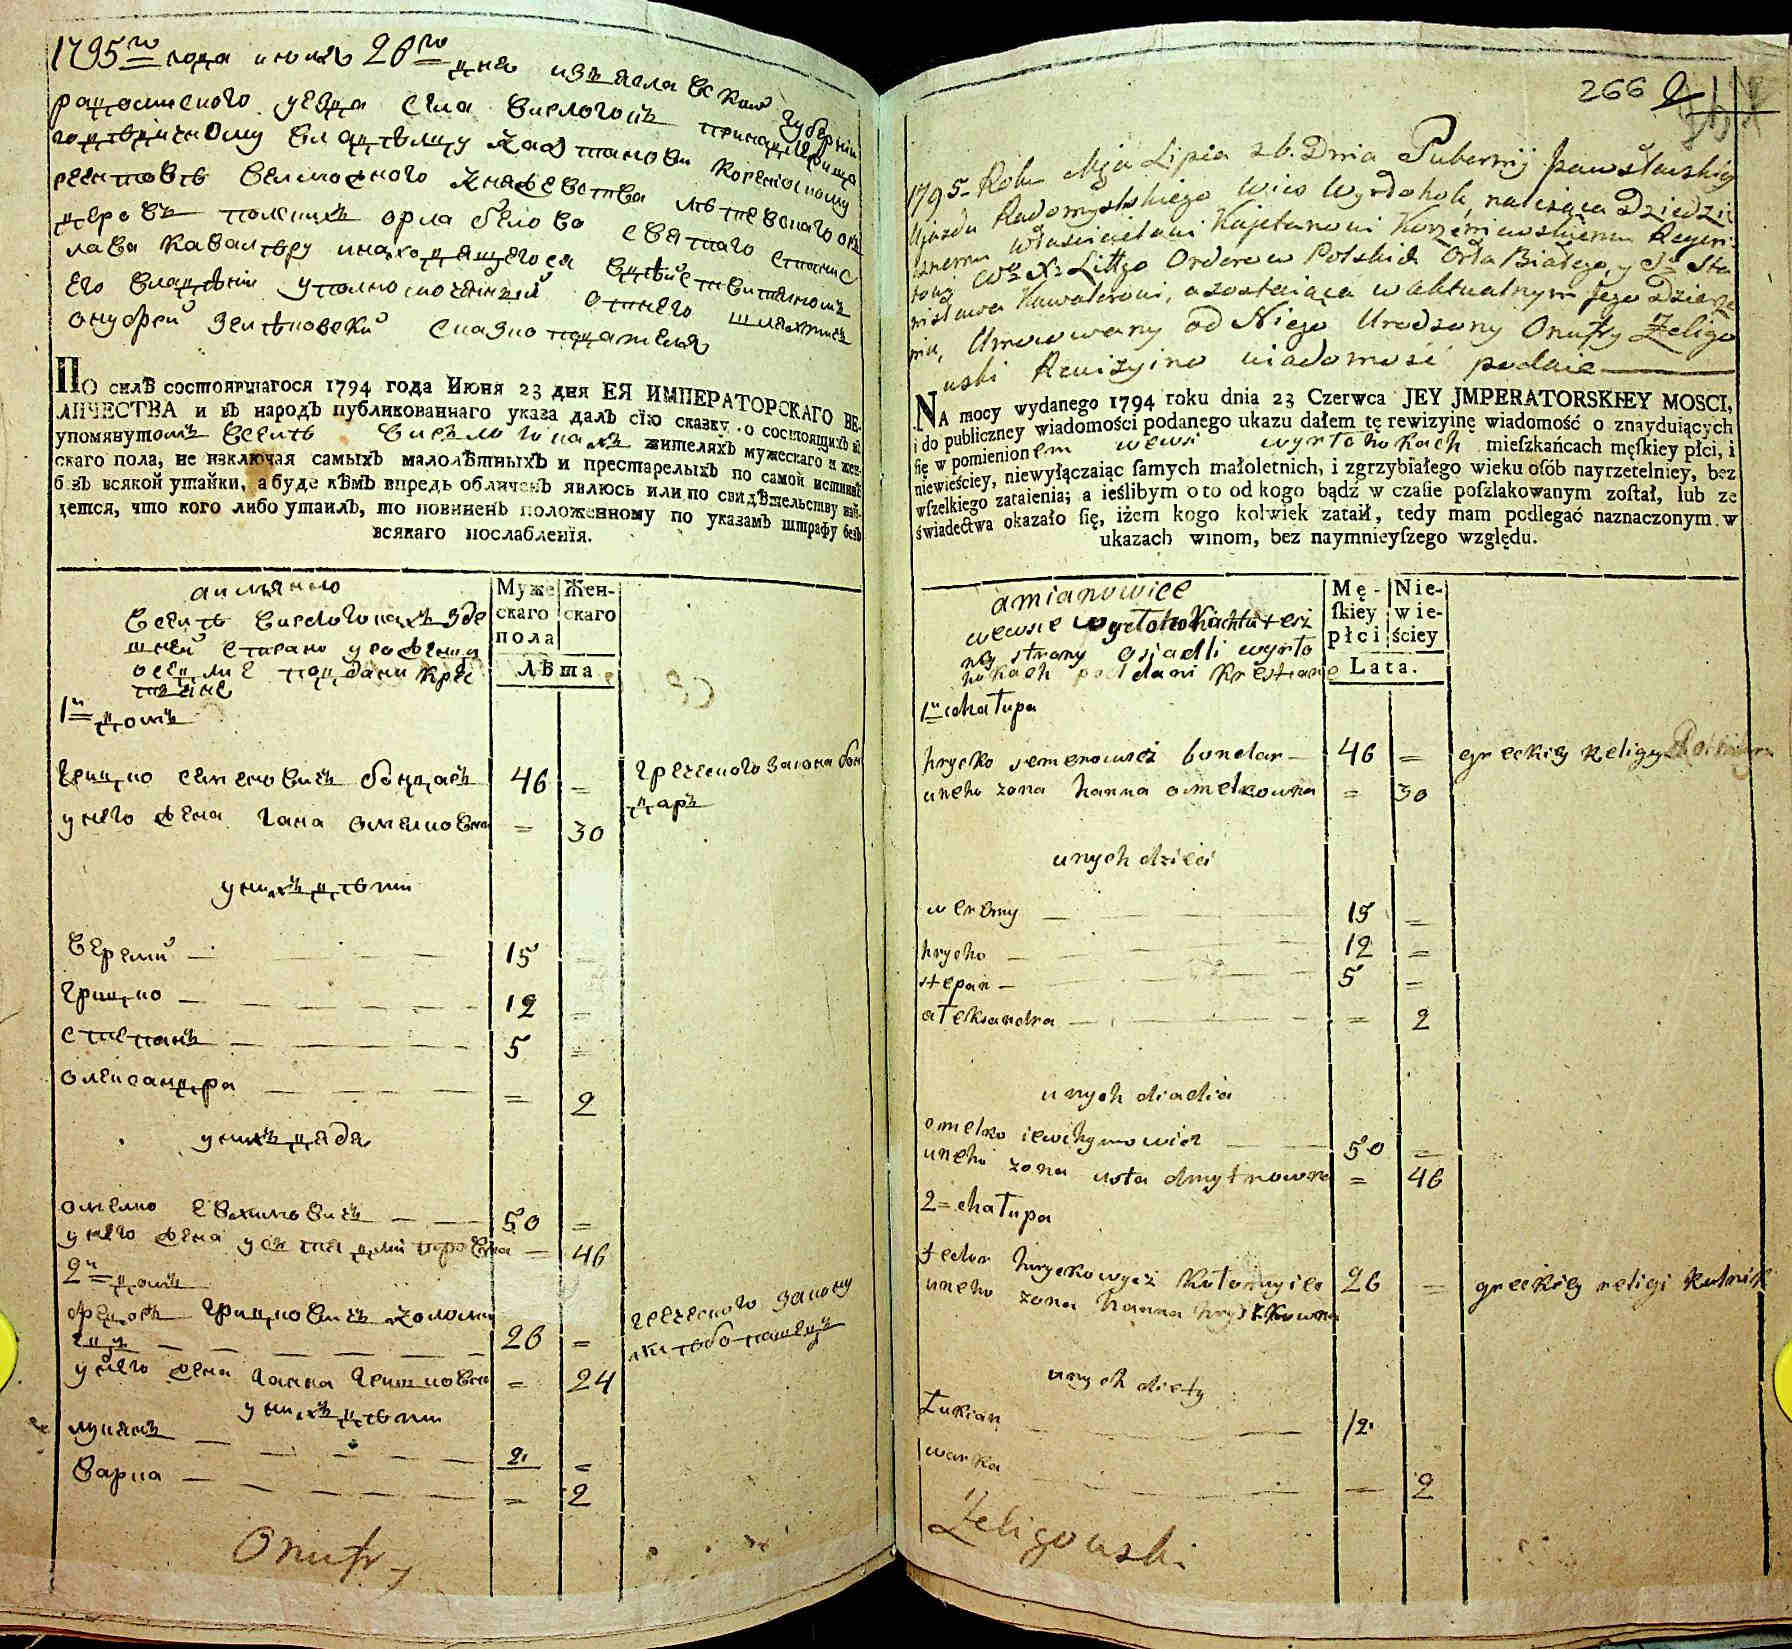 1795го года июля 26го дня изяславской губернии
радомисского уезда села вирлогокъ принадлежаща
го дедичному владелцу каэтанови корженіовскому
реентовъ велможного князевства литовского ор
деровъ полскихъ орла белого святаго станис
лава кавалеру инаходящегося вдействителномъ
его владении уполномоченный отнего шляхтичъ
онуфрей зелиговский сказко подателя
По силѣ состоявшагося 1794 года Июня 23 дня ЕЯ ИМПЕРАТОРСКАГО ВЕ-
ЛИЧЕСТВА и въ народъ публикованнаго указа далъ сїю сказку о состоящихъ въ
упомянутомъ
жителяхъ мужескаго и жен-
скаго пола, не изключая самыхъ малолѣтныхъ и престарелыхъ по самой истиннѣ
безъ всякой утайки, а буде кѣмъ впредь обличенъ явлюсь или по свидѣтельству най-
дется, что кого либо утаилъ, то повиненъ положенному по указамъ штрафу безъ
всякаго послабленїя.
аимянно
Муже
скаго
пола
Жен-
скаго
Лѣта
1й домъ
грицко семеновичъ бондаръ 46 =
греческого закона бон
даръ
унего жена гана омелковна = 30
унихъ дѣти
веремий 15 =
грицко 12 =
степанъ 5 =
олександра = 2
унихъ дядя
омелко евхимовичъ 50 =
унего жена устя дмитровна = 46
2й домъ
федоръ грицковичъ коломи
ецъ 26 =
греческого закону
хлѣбопашецъ
унего жена ганна гришковна = 24
унихъ дѣти
лукянъ 2 =
варка = 2
Onufry
266
1795 Roku Mca Lipca 26. Dnia Gubernij Jzasławskiey
Ujazdu Radomyslskiego Wies Wyrdohok, należąca Dziedzi
cznemu właścicielowi Kajetanowi Korzeniowskiemu Regen
towi W° X° Littgo Orderow Polskich Orła Białego, y S° Sta
nisława Kawalerowi, a zostaiąca w aktualnym Jego Dzierze
niu, Umocowany od Niego Urodzony Onufry Zeligo
wski Rewizyino wiadomosć podaie
NA mocy wydanego 1794 roku dnia 23 Czerwca JEY JMPERATORSKIEY MOSCI,
i do publiczney wiadomości podanego ukazu dałem tę rewizyinę wiadomość o znayduiących
się w pomienionem wewsi wyrtohokach mieſzkańcach męſkiey płci, i
niewieściey, niewyłączaiąc ſamych małoletnich, i zgrzybiałego wieku oſób nayrzetelniey, bez
wſzelkiego zataienia; a ieślibym o to od kogo bądź w czaſie poſzlakowanym zoſtał, lub ze
świadectwa okazało ſię, iżem kogo kolwiek zataił, tedy mam podlegać naznaczonym w
ukazach winom, bez naymnieyſzego względu.
amianowice
Mę-
ſkiey
płci
Nie-
wie-
ściey
Lata.
wewsie wyrtohokach tutesz
ney strony osiadli wyrto
hokach poddani Krestianie
1n chałupa
hrycko semenowicz bondar 46 =
greckiey Religy
uneho zona hanna omelkowna = 30
unych dzieci
weremy 15 =
hrycko 12 =
stepan 5 =
ałeksandra = 2
unych diadia
omelko iewchymowicz 50 =
uneho zona usta dmytrowna = 46
2 = chałupa
fedor hryckowycz Kołomyiec 26 =
greckiey religi Rolnik
uneho zona hanna hryszkowna
unych diety
Łukian 2
warka = 2
Zeligowski